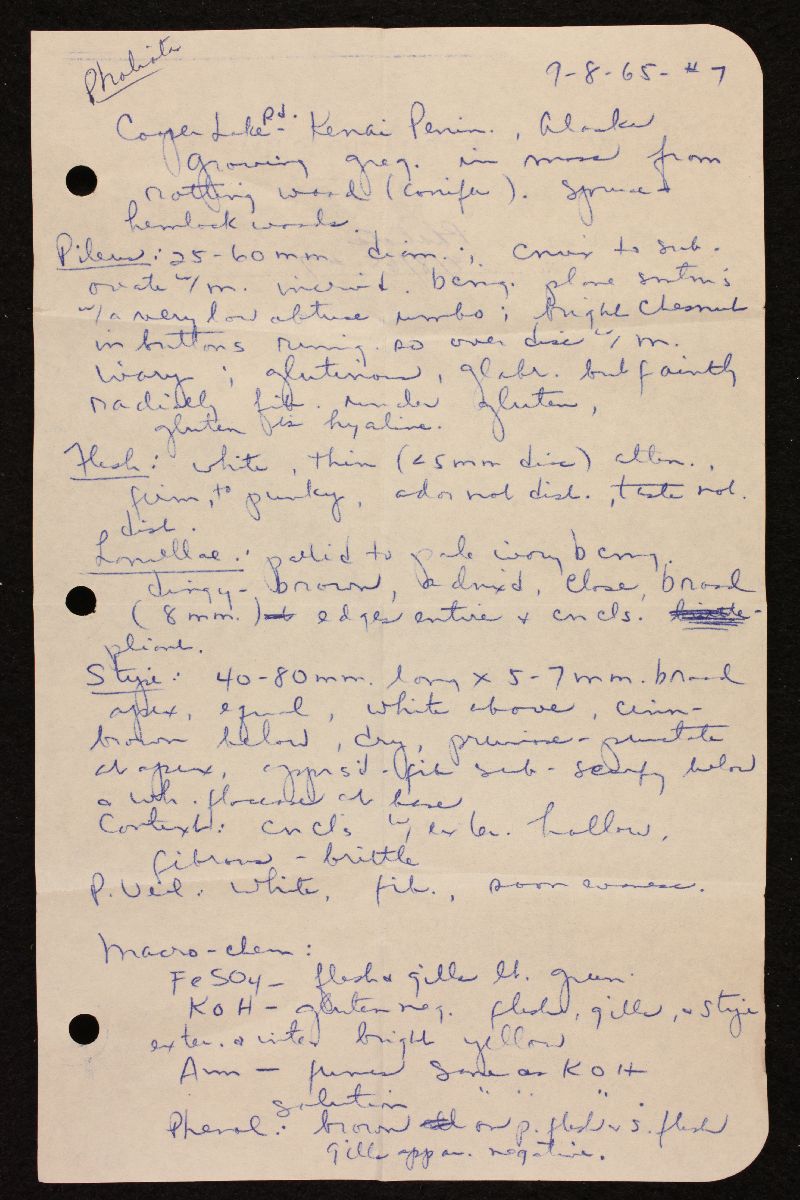 Pholiota
9-8-65-#7
Cooper Lake Rd. - Kenai Penin., Alaska
Growing greg. in moss from
rotting wood (conifer). Spruce +
hemlock woods.
Pileus: 25-60 mm diam.; cnvx to sub-
ovate w/m. incurv'd. bcmg. plane smtm's
w/a very low obtuse umbo; bright chesnut
in buttons so over disc w/ m.
ivory; glutinous, glabr. but faintly
radially fib. under gluten,
gluten is hyaline.
Flesh: white, thin (<5mm disc) atten.,
firm, to punky, odor not dist., taste not.
dist.
Lamellae: pallid to pale ivory bcmg.
dingy-brown, adnx'd, close, broad
(8 mm.) edges entire + cncls.
pliant.
Stipe: 40-80mm. long x 5-7mm. broad
apex, equal, white above, cinn-
brown below, dry, pruinose-punctate
at apex, apprs'd-fib sub-scurfy below
a wh. floccose at base
Context: cncls w/ exter. hollow,
fibrous - brittle
P. Veil: white, fib., soon evanesc.
Macro-chem:
FeSO4- flesh + gills lt. green.
KOH - gluten neg. flesh, gills, + stipe
exter. + inter bright yellow
Amm - fumes same as KOH
solution " " ".
Phenol: brown on p. flesh + s. flesh
gills appar. negative.